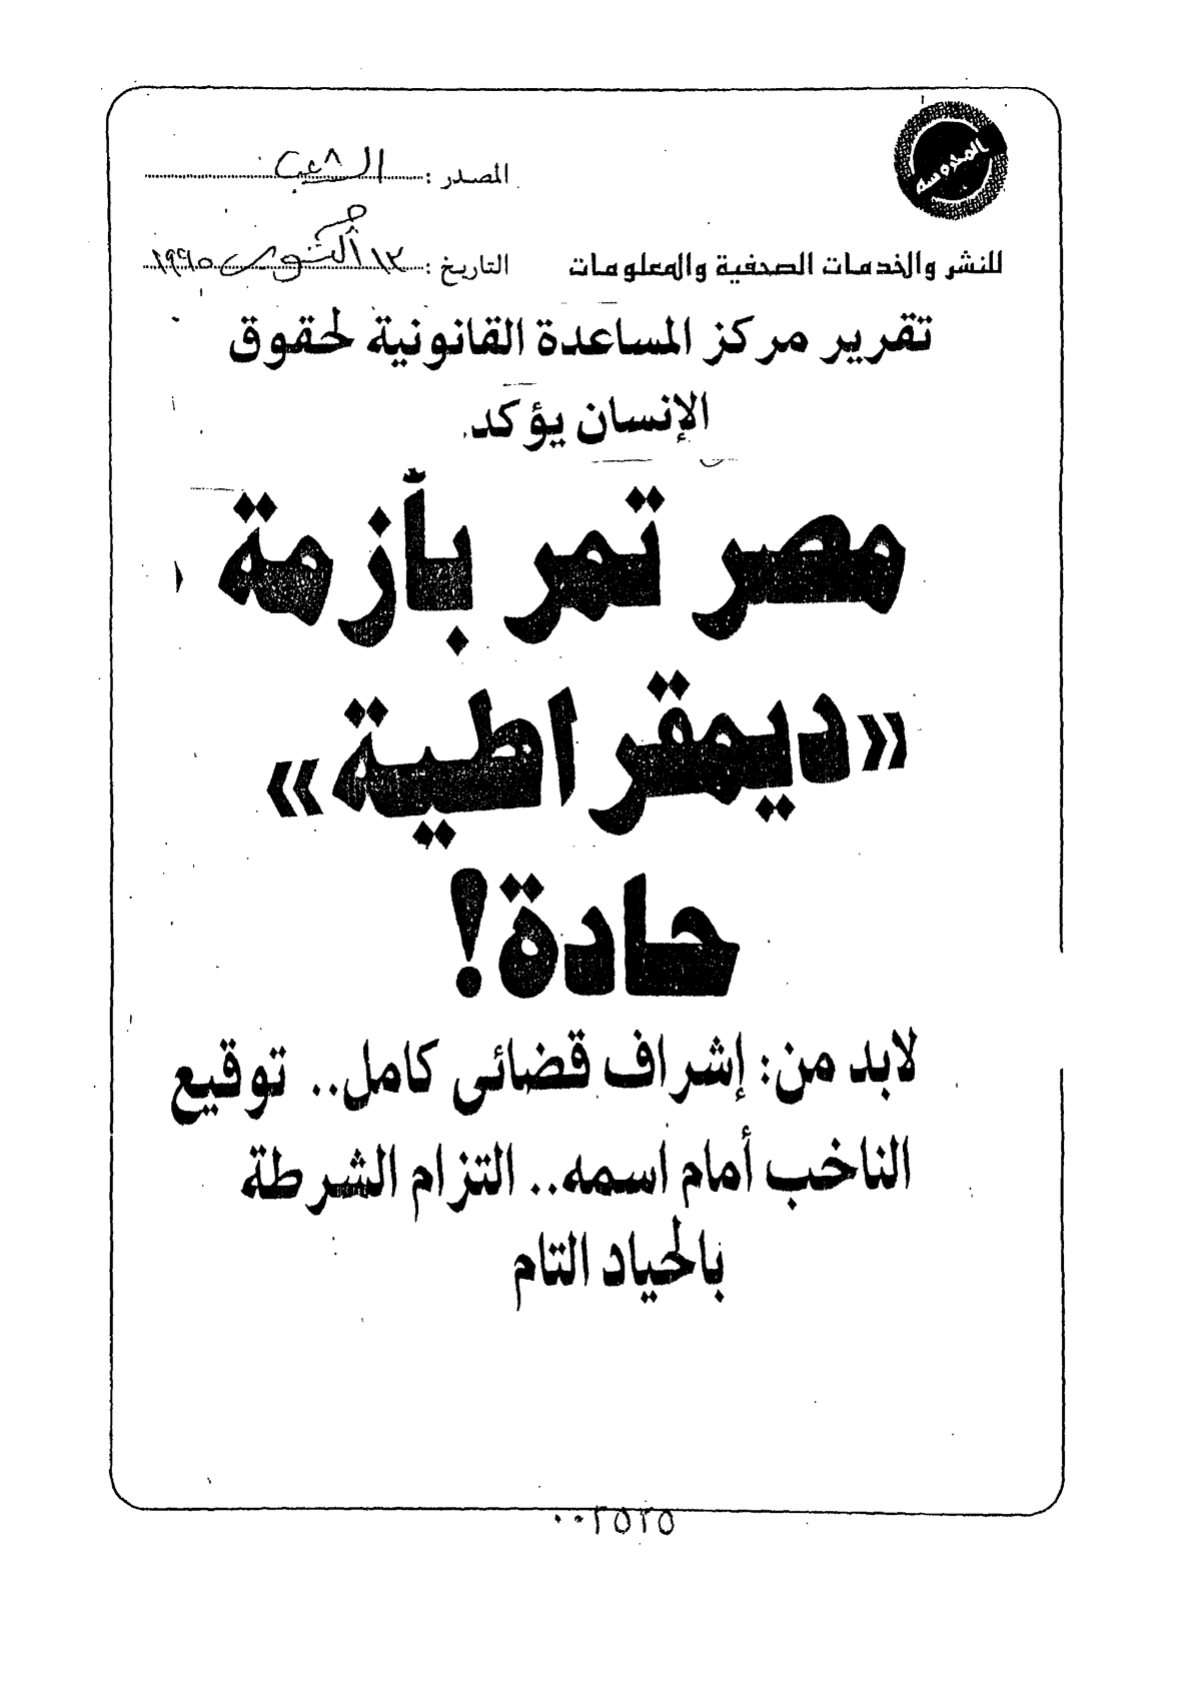 المحروسة
المصدر : الشعب
للنشر والخدمات الصحفية والمعلومات
التاريخ : ١٣ أكتوبر ١٩٩٥
تقرير مركز المساعدة القانونية لحقوق
الإنسان يؤكد
مصر تمر بأزمة
«ديمقراطية»
حادة!
لابد من: إشراف قضائى كامل.. توقيع
الناخب أمام اسمه.. التزام الشرطة
بالحياد التام
٠٠٢٥٢٥